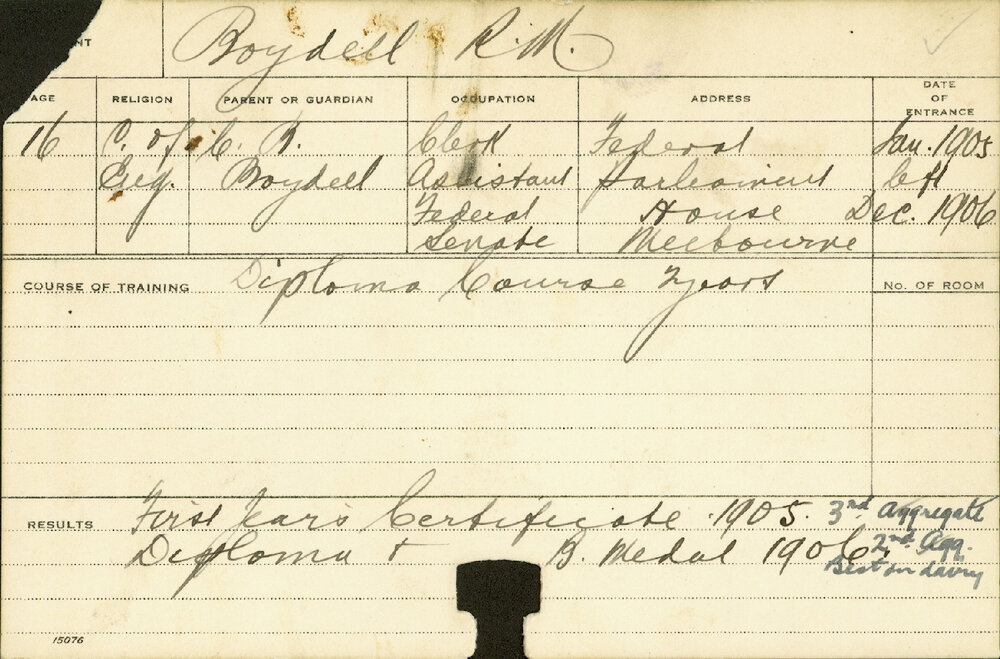 NT Boydell R.M.
AGE RELIGION PARENT OR GUARDIAN OCCUPATION ADDRESS DATE OF ENTRANCE
16 C. of C. B. Clerk Federal Jan. 1905
Eng. Boydell Assistant Parliament left
Federal House Dec. 1906
Senate Melbourne
COURSE OF TRAINING Diploma Course 2 years No. OF ROOM
RESULTS First Year's Certificate 1905. 3rd Aggregate
Diploma + B. Medal 1906. 2nd Agg.
Best in dairy
15076